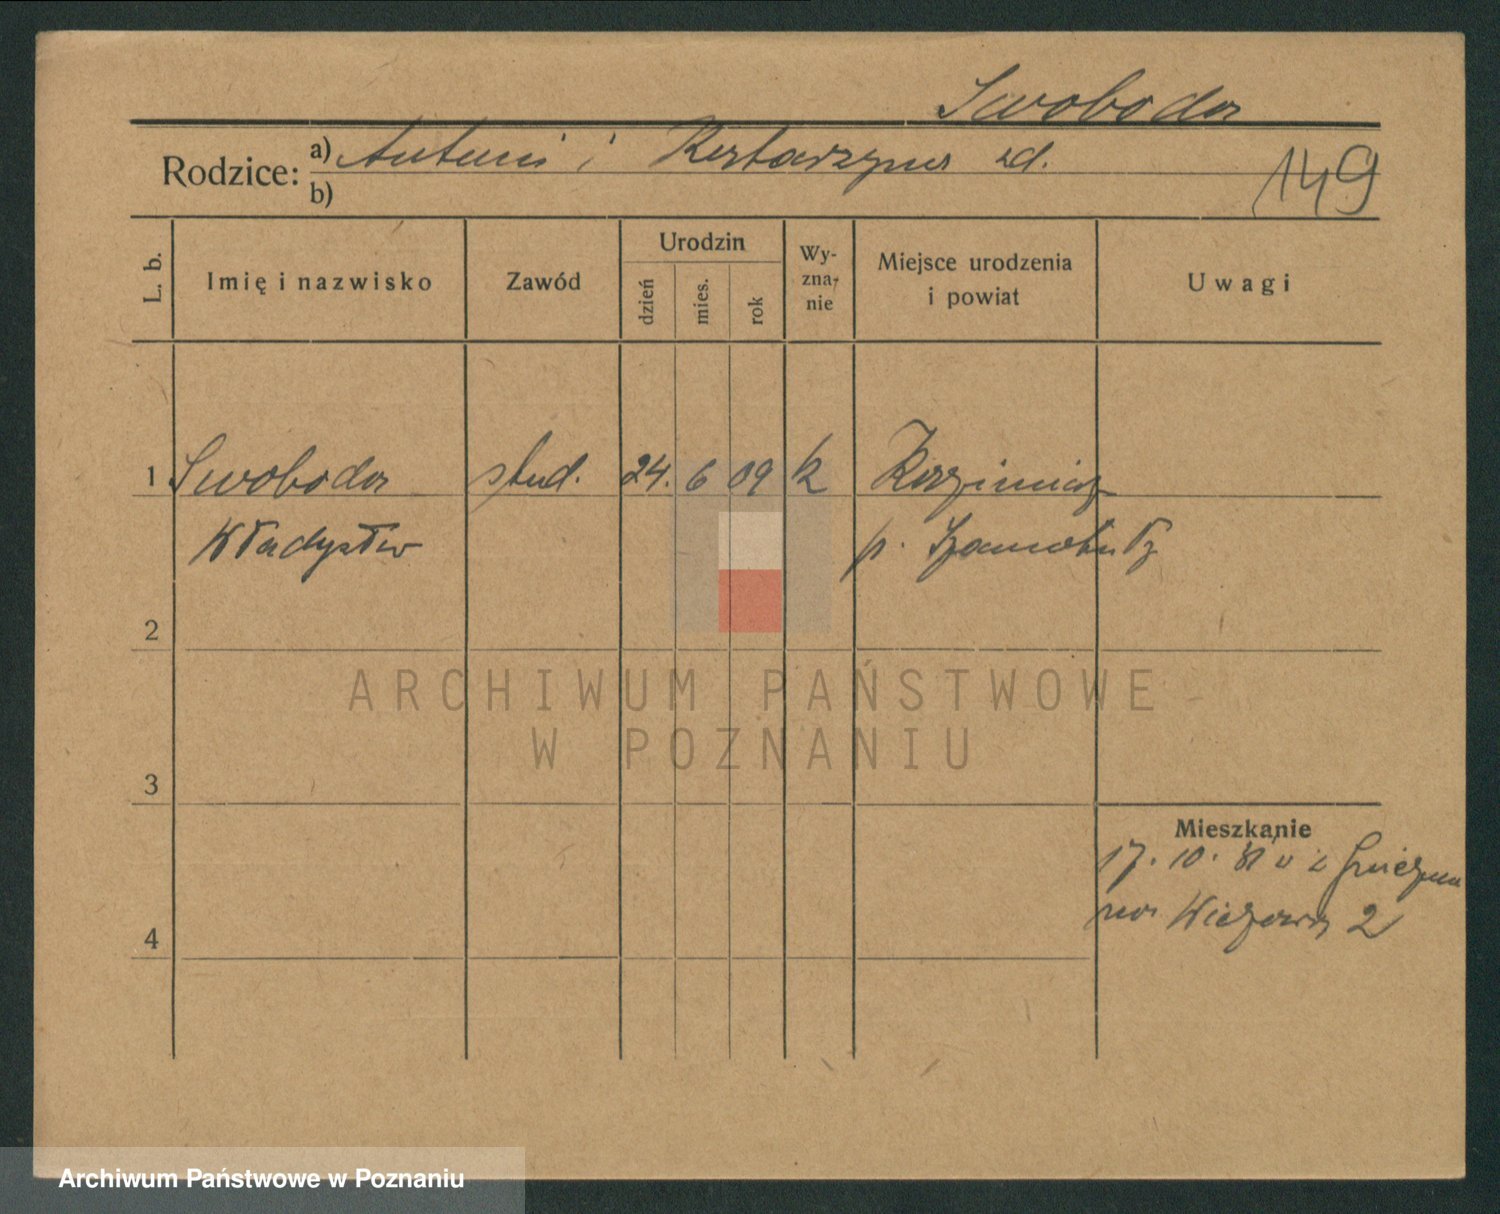 Swoboda
Rodzice: a) Antoni i Katarzyna zd.
149
b)
L. b.
Imię i nazwisko
Zawód
Urodzin
dzień
mies.
rok
Wy-
zna-
nie
Miejsce urodzenia
i powiat
Uwagi
1 Swoboda stud. 24. 6 09 k Kazimierz
Władysław p. Szamotuły
2
ARCHIWUM PAŃSTWOWE
W POZNANIU
3
Mieszkanie
17. 10. z Gniezna
na 2
4
Archiwum Państwowe w Poznaniu